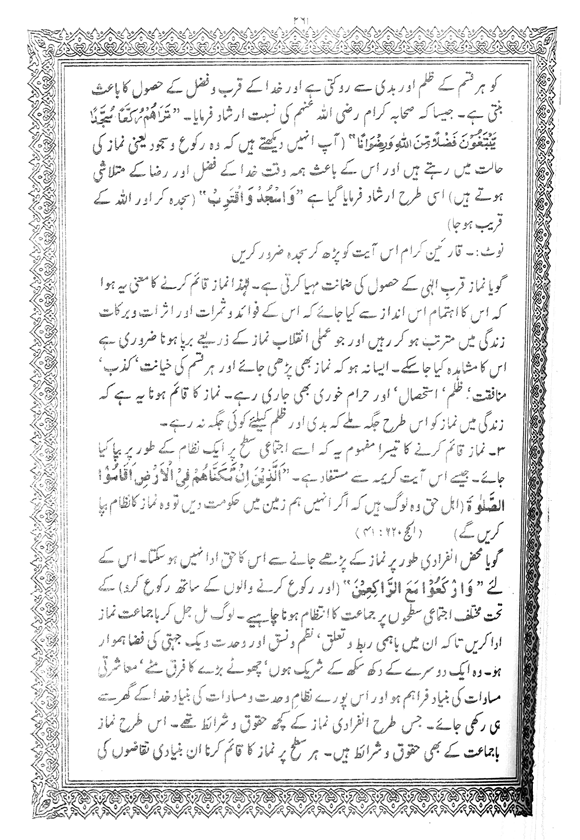 ۳۶۱
کو ہر قسم کے ظلم اور بدی سے روکتی ہے اور خدا کے قرب و فضل کے حصول کا باعث
بنتی ہے۔ جیسا کہ صحابہ کرام رضی اللہ عنہم کی نسبت ارشاد فرمایا۔ ”تَرَاهُمْ رُكَّعًا سُجَّدًا
يَّبْتَغُوْنَ فَضْلًا مِّنَ اللهِ وَرِضْوَانًا“ (آپ انہیں دیکھتے ہیں کہ وہ رکوع و سجود یعنی نماز کی
حالت میں رہتے ہیں اور اس کے باعث ہمہ وقت خدا کے فضل اور رضا کے متلاشی
ہوتے ہیں) اسی طرح ارشاد فرمایا گیا ہے ”وَاسْجُدْ وَاقْتَرِبْ“ (سجدہ کر اور اللہ کے
قریب ہو جا)
نوٹ:۔ قارئین کرام اس آیت کو پڑھ کر سجدہ ضرور کریں
گویا نماز قرب الٰہی کے حصول کی ضمانت مہیا کرتی ہے۔ لہٰذا نماز قائم کرنے کا معنی یہ ہوا
کہ اس کا اہتمام اس انداز سے کیا جائے کہ اس کے فوائد و ثمرات اور اثرات و برکات
زندگی میں مترتب ہو کر رہیں اور جو عملی انقلاب نماز کے ذریعے برپا ہونا ضروری ہے
اس کا مشاہدہ کیا جا سکے۔ ایسا نہ ہو کہ نماز بھی پڑھی جائے اور ہر قسم کی خیانت‘ کذب‘
منافقت‘ ظلم‘ استحصال‘ اور حرام خوری بھی جاری رہے۔ نماز کا قائم ہونا یہ ہے کہ
زندگی میں نماز کو اس طرح جگہ ملے کہ بدی اور ظلم کیلئے کوئی جگہ نہ رہے۔
۳۔ نماز قائم کرنے کا تیسرا مفہوم یہ کہ اسے اجتماعی سطح پر ایک نظام کے طور پر بپا کیا
جائے۔ جیسے اس آیت کریمہ سے مستفاد ہے۔ ”اَلَّذِيْنَ اِنْ مَّكَّنّٰهُمْ فِي الْاَرْضِ اَقَامُوا
الصَّلٰوةَ (اہل حق وہ لوگ ہیں کہ اگر انہیں ہم زمین میں حکومت دیں تو وہ نماز کا نظام بپا
کریں گے) (الحج ۲۲۰ : ۴۱)
گویا محض انفرادی طور پر نماز کے پڑھے جانے سے اس کا حق ادا نہیں ہو سکتا۔ اس کے
لئے ”وَارْكَعُوْا مَعَ الرَّاكِعِيْنَ“ (اور رکوع کرنے والوں کے ساتھ رکوع کرو) کے
تحت مختلف اجتماعی سطحوں پر جماعت کا انتظام ہونا چاہیے۔ لوگ مل جل کر با جماعت نماز
ادا کریں تاکہ ان میں باہمی ربط و تعلق‘ نظم و نسق اور وحدت و یک جہتی کی فضا ہموار
ہو۔ وہ ایک دوسرے کے دکھ سکھ کے شریک ہوں‘ چھوٹے بڑے کا فرق مٹے‘ معاشرتی
مساوات کی بنیاد فراہم ہو اور اس پورے نظام وحدت و مساوات کی بنیاد خدا کے گھر سے
ہی رکھی جائے۔ جس طرح انفرادی نماز کے کچھ حقوق و شرائط تھے۔ اس طرح نماز
باجماعت کے بھی حقوق و شرائط ہیں۔ ہر سطح پر نماز کا قائم کرنا ان بنیادی تقاضوں کی